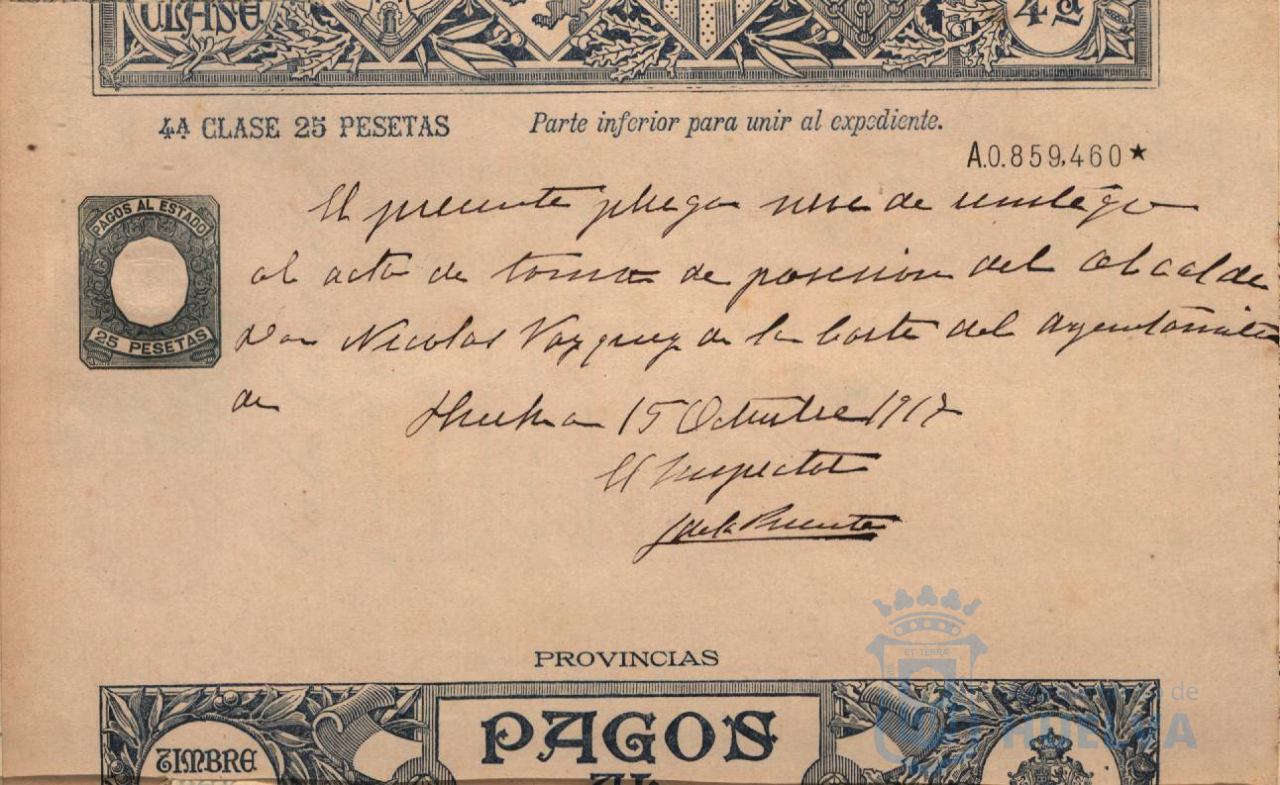 CLASE 4ª
4A CLASE 25 PESETAS Parte inferior para unir al expediente.
A.0.859,460★
PAGOS AL ESTADO
25 PESETAS
El presente pliego sirve de reintegro
al acta de toma de posesion del Alcalde
Don Nicolas Vazquez de la Corte del Ayuntamiento
de Huelva 15 Octubre 1917
El Inspector
J de la Puente
PROVINCIAS
ET TERRÆ
de
HUELVA
TIMBRE
PAGOS
AL